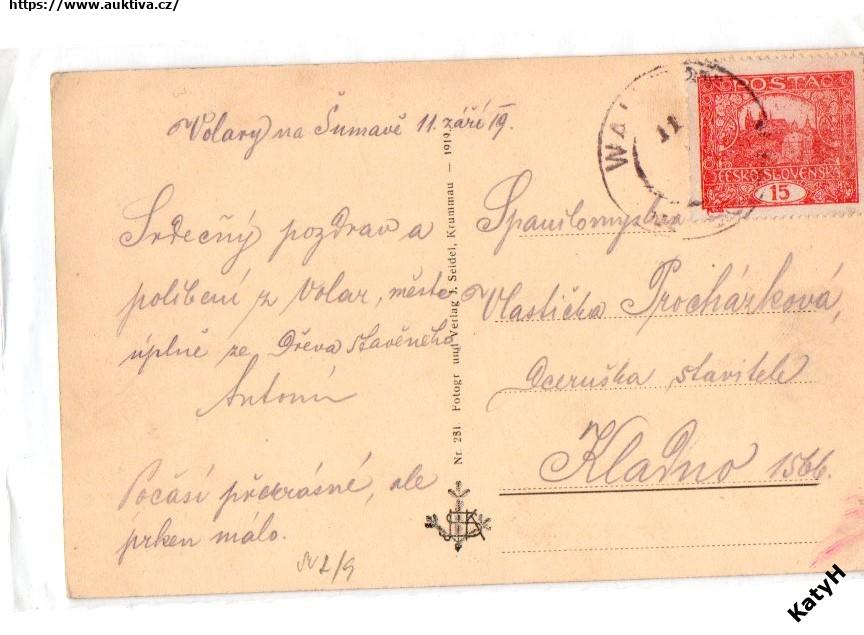 https://www.auktiva.cz/
Volary na Šumavě 11. září 19.
Srdečný pozdrav a
políbení z Volar, města
úplně ze Dřeva stavěného
Antonín
Počasí překrásné, ale
prken málo.
Nr. 281 Fotogr und Verlag J. Seidel, Krummau — 1919.
WAL
11
POSTA
ČESKO-SLOVENSKÁ
15
Spanilomyslná
Vlastička Procházková,
Dceruška stavitele
Kladno 1566.
KatyH